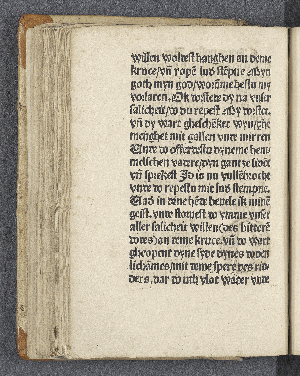 willen woldest hanghen an deme
kruce/vn̄ ropē lud stēpne Myn
goth myn god/worūme hestu my
vorlaten. Ok dorstede dy na vnser
salicheit/do du repest My dorstet.
vn̄ dy wart gheschēket wyn/ghe
menghet mit gallen vnde mirren
Vnde do offerdestu dyneme hem
melschen vadere/dyn gantze lidēt
vn̄ sprekest Id is nu vullēbrocht
vnde do repestu mit lud stempne.
Vad in dine hēde beuele ik minē
geist. vnde storuest do vmme vnser
aller salicheit willen/des bitterē
dodes/an deme kruce. vn̄ do wart
gheopent dyne syde dynes doden
lichāmes/mit deme spere des rid
ders, dar do uth vlot water vnde